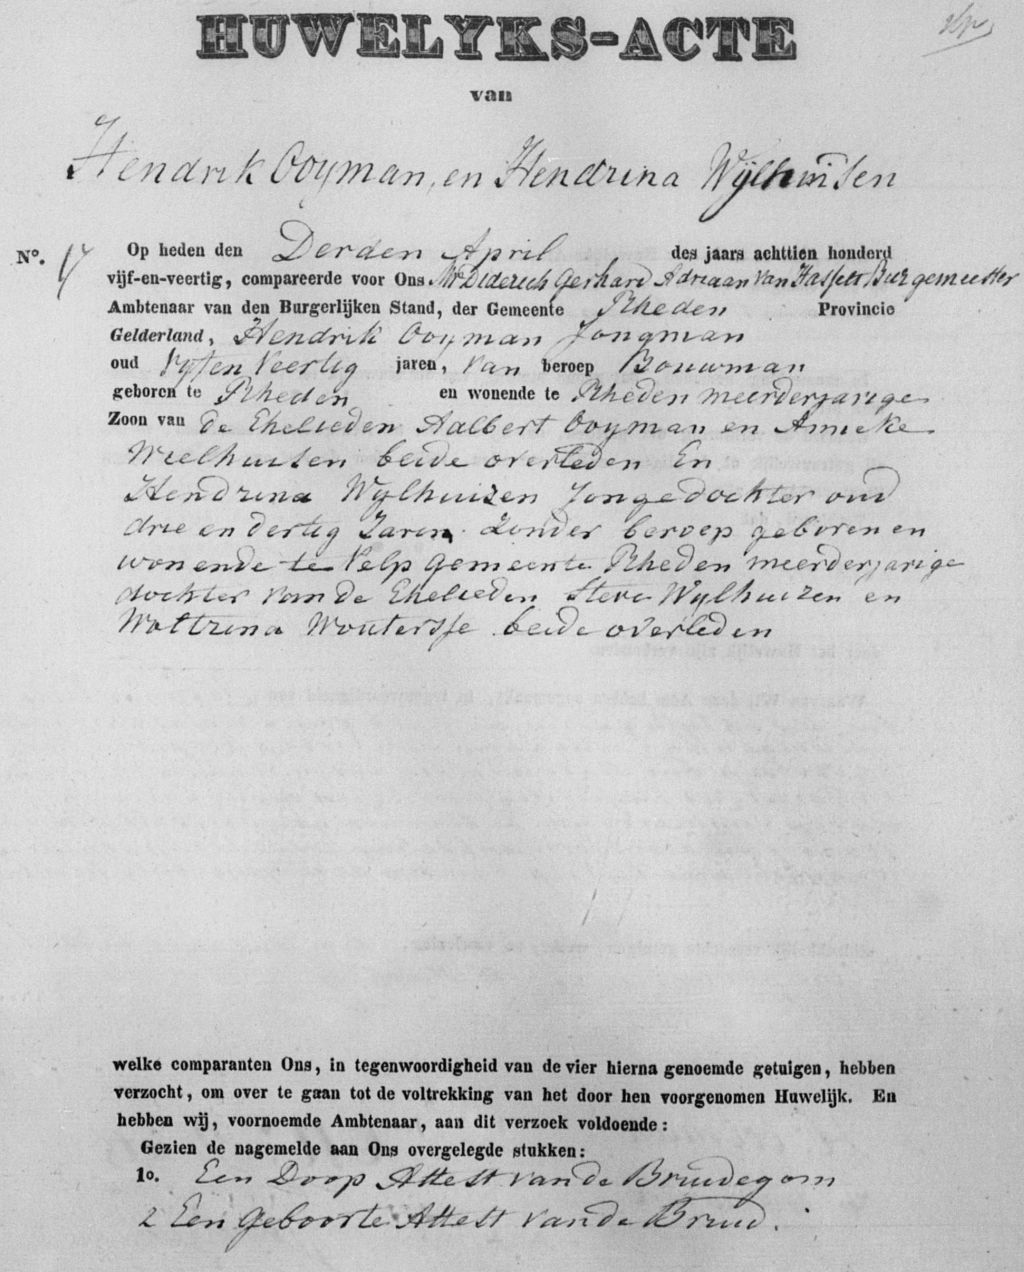 HUWELYKS-ACTE
van
Hendrik Ooyman, en Hendrina Wijlhuisen
No. 17 Op heden den Derden April des jaars achttien honderd
vijf-en-veertig, compareerde voor Ons Mr Diderich Gerhard Adriaan van Hasselt Burgemeester
Ambtenaar van den Burgerlijken Stand, der Gemeente Rheden Provincie
Gelderland, Hendrik Ooyman Jongman
oud Vyfen Veertig jaren, van beroep Bouwman
geboren te Rheden en wonende te Rheden meerderjarige
Zoon van de Ehelieden Aalbert Ooyman en Anneke
Weelhuisen beide overleden En
Hendrina Wylhuizen Jongedochter oud
drie en dertig Jaren Zonder beroep geboren en
wonende te Velp Gemeente Rheden meerderjarige
dochter van de Ehelieden Steve Wylhuizen en
Woltrina Wouterse beide overleden
welke comparanten Ons, in tegenwoordigheid van de vier hierna genoemde getuigen, hebben
verzocht, om over te gaan tot de voltrekking van het door hen voorgenomen Huwelijk. En
hebben wij, voornoemde Ambtenaar, aan dit verzoek voldoende:
Gezien de nagemelde aan Ons overgelegde stukken:
1o. Een Doop Attest van de Bruidegom
2 Een Geboorte Attest van de Bruid.